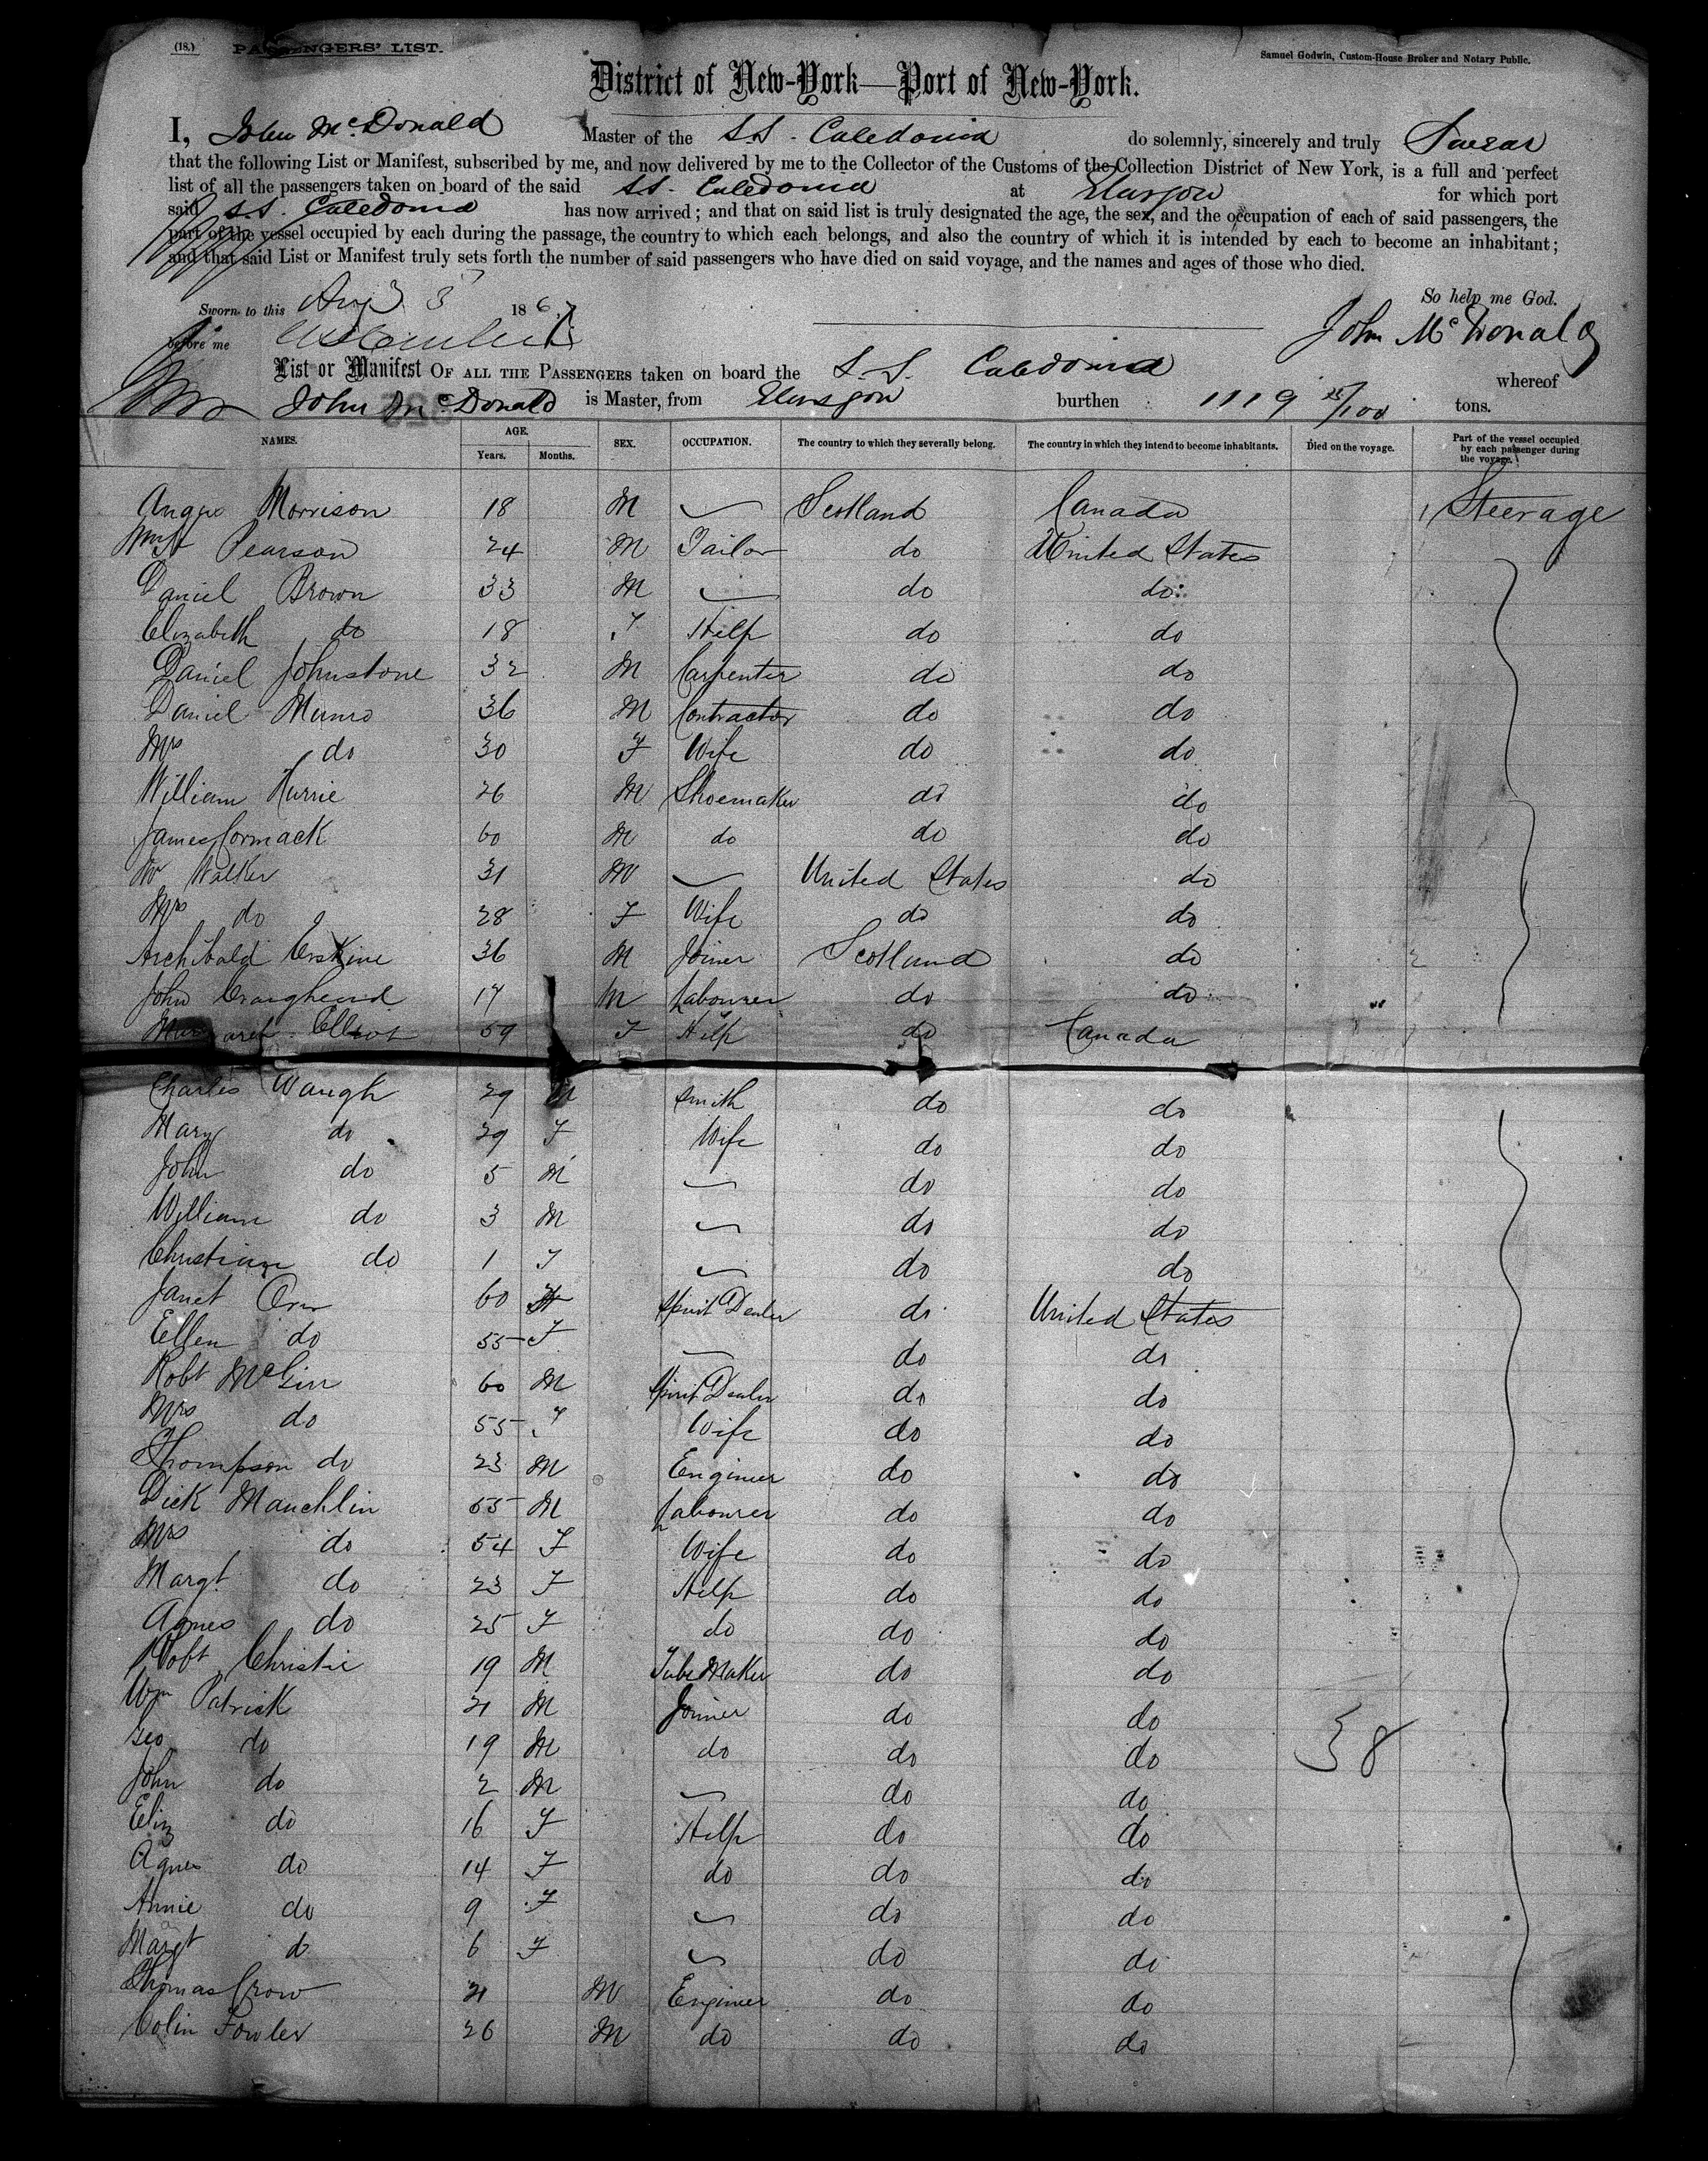 (18.) PASSENGERS' LIST.
Samuel Godwin, Custom-House Broker and Notary Public.
District of New-York—Port of New-York.
I, John McDonald Master of the S.S. Caledonia do solemnly, sincerely and truly Swear
that the following List or Manifest, subscribed by me, and now delivered by me to the Collector of the Customs of the Collection District of New York, is a full and perfect
list of all the passengers taken on board of the said S.S. Caledonia at Glasgow for which port
said S.S. Caledonia has now arrived; and that on said list is truly designated the age, the sex, and the occupation of each of said passengers, the
part of the vessel occupied by each during the passage, the country to which each belongs, and also the country of which it is intended by each to become an inhabitant;
and that said List or Manifest truly sets forth the number of said passengers who have died on said voyage, and the names and ages of those who died.
So help me God.
Sworn to this Aug 3 186
John McDonald
before me
List or Manifest OF ALL THE PASSENGERS taken on board the S.S. Caledonia whereof
John McDonald is Master, from Glasgow burthen 1119 /100 tons.
NAMES. AGE. Years. Months. SEX. OCCUPATION. The country to which they severally belong. The country in which they intend to become inhabitants. Died on the voyage. Part of the vessel occupied by each passenger during the voyage.
Angus Morrison 18 M Scotland Canada Steerage
Pearson 24 M Tailor do United States
Daniel Brown 33 M do do
Elizabeth do 18 F Help do do
Daniel Johnstone 32 M Carpenter do do
Daniel Munro 36 M Contractor do do
Mrs do 30 F Wife do do
William Hurrie 26 M Shoemaker do do
James Cormack 60 M do do do
Walker 31 M United States do
Mrs do 28 F Wife do do
Archibald Erskine 36 M Joiner Scotland do
John Craighead 17 M Labourer do do
Margaret Elliot 59 F Help do Canada
Charles Waugh 29 M Smith do do
Mary do 29 F Wife do do
John do 5 M do do
William do 3 M do do
Christiana do 1 F do do
Janet Orr 60 F Spirit Dealer do United States
Ellen do 55 F do do
Robt 60 M Spirit Dealer do do
Mrs do 55 F Wife do do
Thompson do 23 M Engineer do do
Dick Mauchlin 55 M Labourer do do
Mrs do 54 F Wife do do
Margt do 23 F Help do do
Agnes do 25 F do do do
Robt Christie 19 M Tube Maker do do
Wm Patrick 21 M Joiner do do
Geo do 19 M do do do 38
John do 2 M do do
Eliz do 16 F Help do do
Agnes do 14 F do do do
Annie do 9 F do do
Margt do 6 F do do
Thomas Crow 21 M Engineer do do
Colin Fowler 26 M do do do